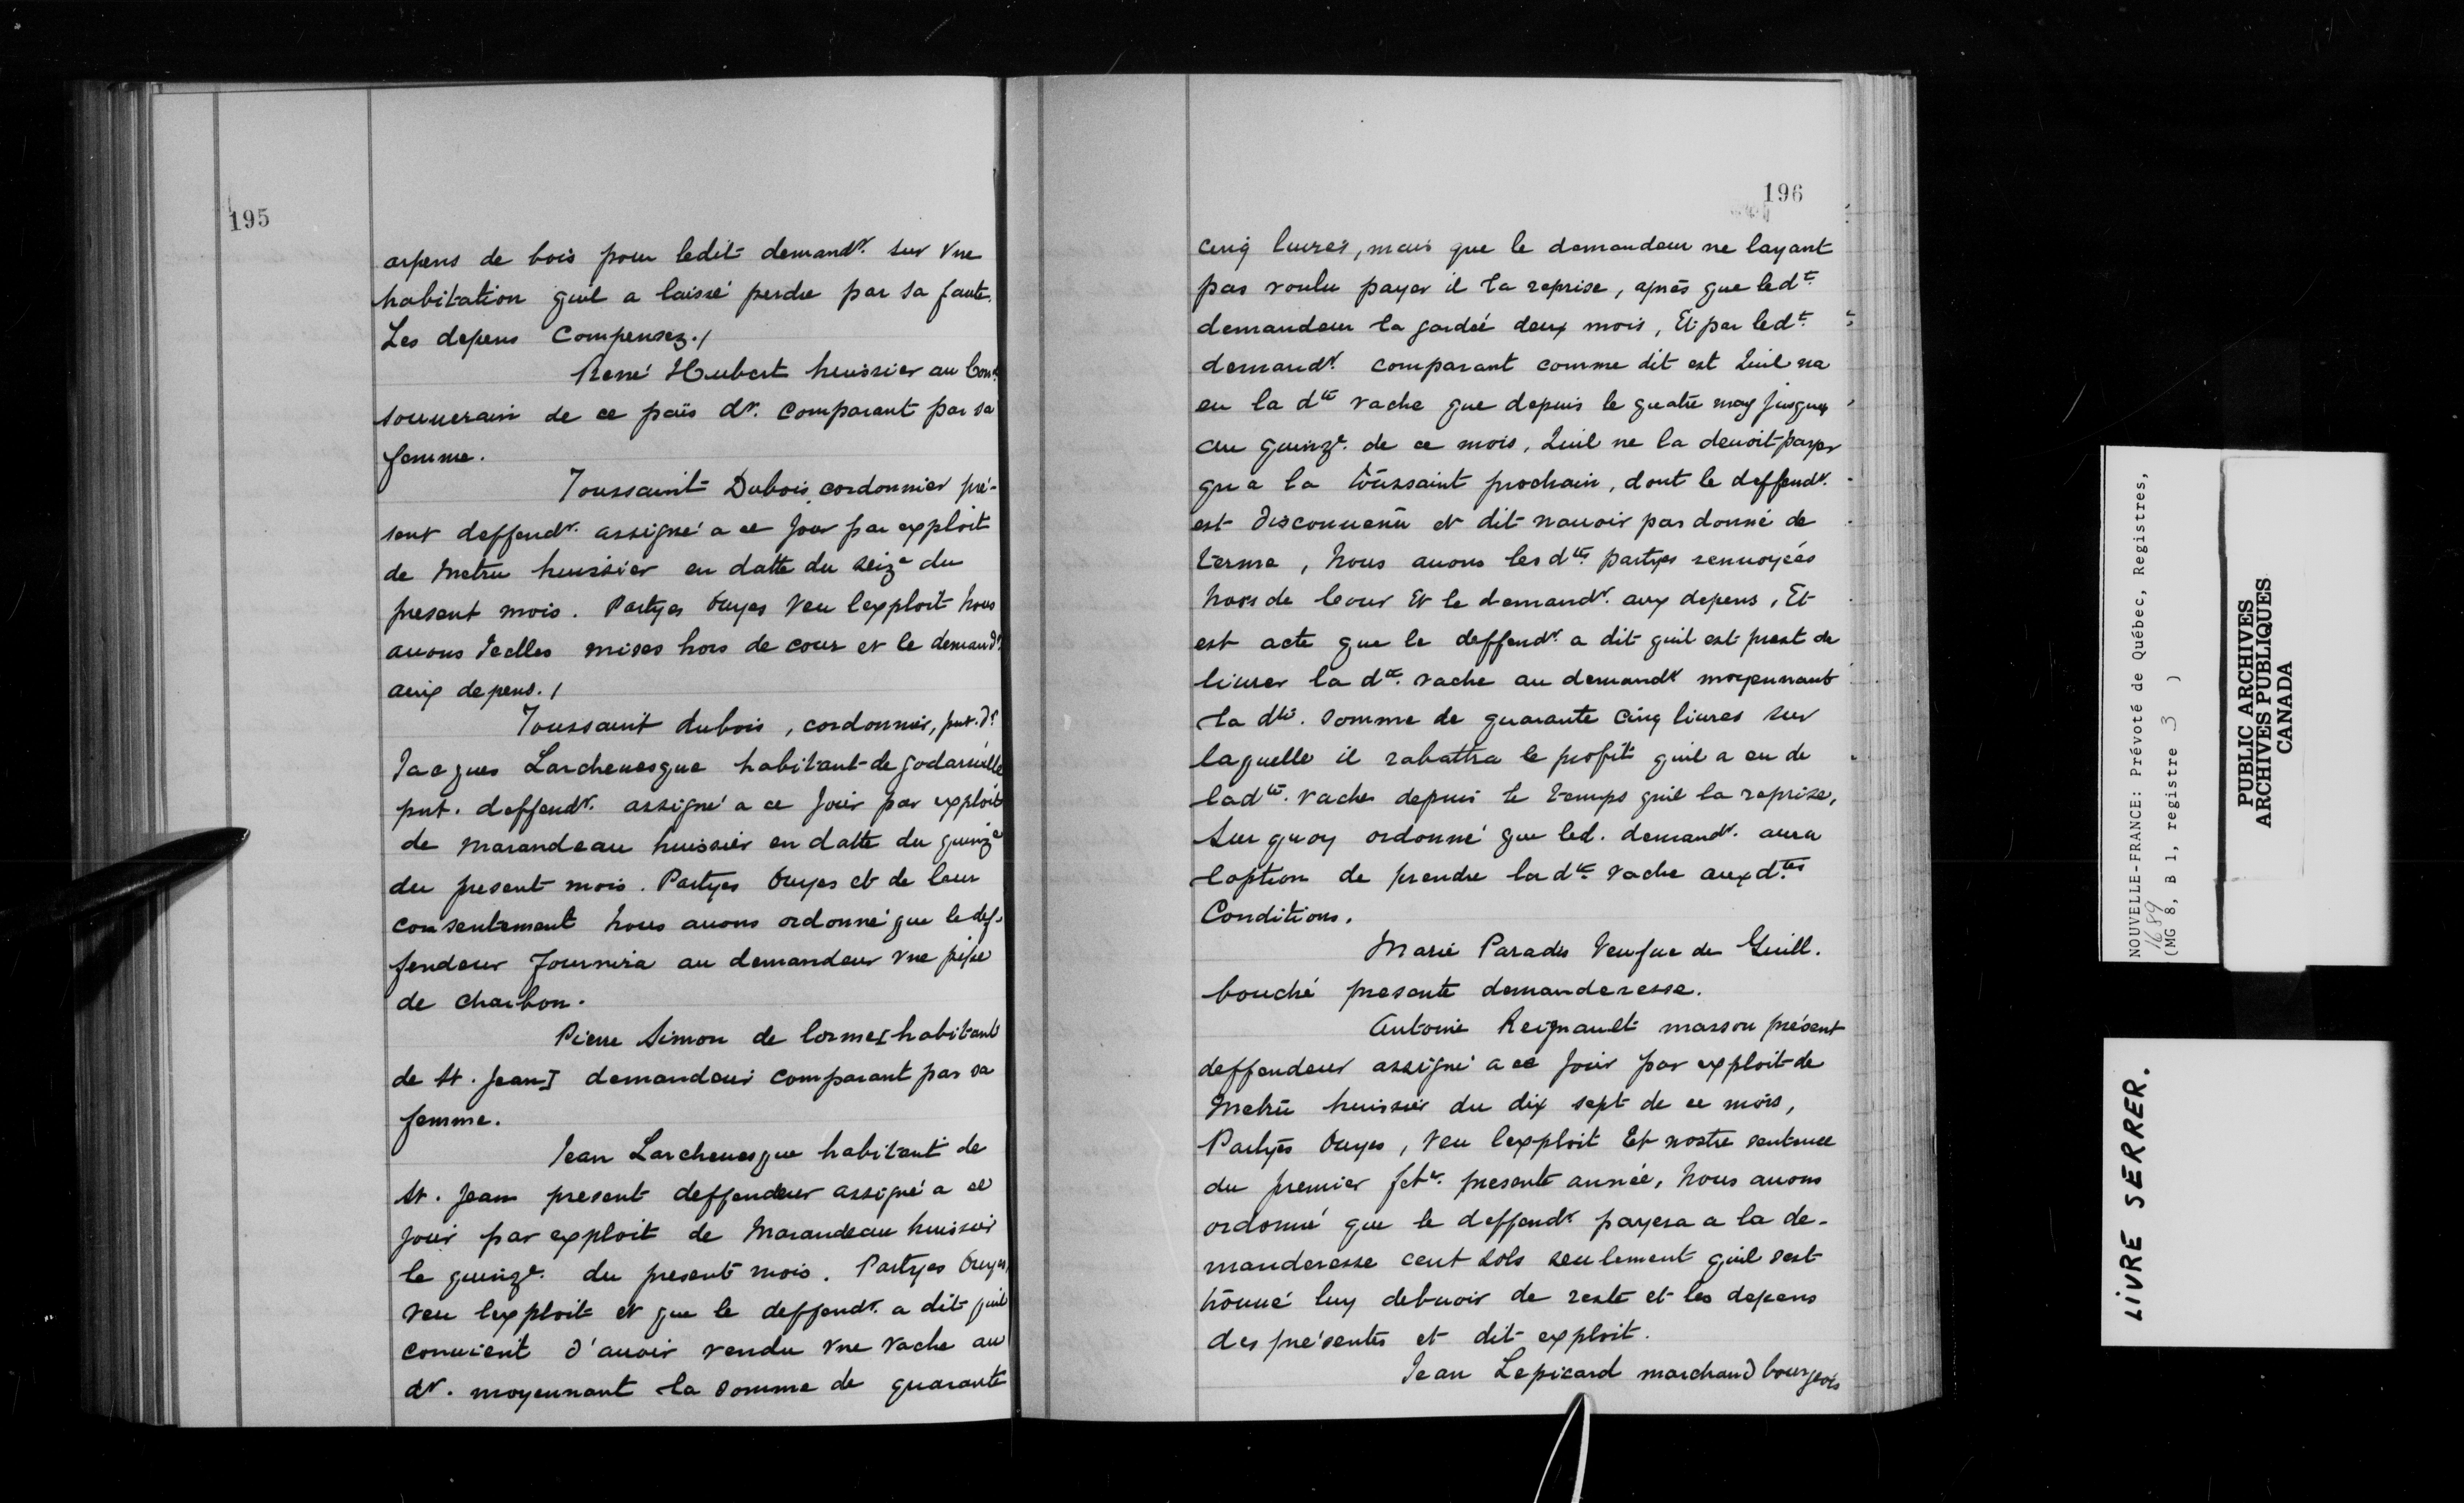 195
arpens de bois pour ledit demandr. sur vne
habitation quil a laissé perdre par sa faute.
Les depens Compensez./
René Hubert huissier au Conl.
souuerain de ce païs dr. comparant par sa
femme.
Toussaint Dubois cordonnier pré-
sent deffendr. assigné a ce Jour par exploit
de Metru huissier en datte du seize du
present mois. Partyes Ouyes Veu lexploit Nous
auons Icelles mises hors de cour et le demandr.
aux depens./
Toussaint dubois, cordonnier, pnt. dr.
Jacques Larcheuesque habitant de godaruille
pnt. deffendr. assigné a ce Jour par exploit
de Marandeau huissier en datte du quinze
du present mois. Partyes Ouyes et de leur
consentement Nous auons ordonné que le def-
fendeur fournira au demandeur vne pipe
de charbon.
Pierre Simon de lorme [habitant
de St. Jean] demandeur comparant par sa
femme.
Jean Larcheuesque habitant de
St. Jean present deffendeur assigné a ce
Jour par exploit de Marandeau huissier
le quinze. du present mois. Partyes Ouyes,
veu lexploit et que le deffendr. a dit quil
conuient d'auoir vendu vne vache au
dr. moyennant la somme de quarante
196
cinq liures, mais que le demandeur ne layant
pas voulu payer il la reprise, apres que ledt.
demandeur la gardée deux mois, Et par ledt.
demandr. comparant comme dit est Quil na
eu la dte vache que depuis le quatre may Jusques
au quinze. de ce mois, Quil ne la deuoit payer
qu a la toussaint prochain, dont le deffendr.
est disconuenu et dit nauoir pas donné de
terme, Nous auons les dtes partyes renuoyées
hors de Cour Et le demandr. aux depens, Et
est acte que le deffendr. a dit quil est prest de
liurer la dte. vache au demandr moyennant
la dte. somme de quarante cinq liures sur
laquelle il rabattra le profit quil a eu de
ladte. vache depuis le temps quil la reprise,
Sur quoy ordonné que led. demandr. aura
loption de prendre ladte vache auxdtes
Conditions.
Marie Paradis Veufue de Guill.
bouché presente demanderesse.
Antoine Reignault masson présent
deffendeur assigné a ce Jour par exploit de
Metru huissier du dix sept de ce mois,
Partyes Ouyes, Veu lexploit Et nostre sentence
du premier febr. presente année, Nous auons
ordonné que le deffendr payera a la de-
manderesse cent sols seulement quil sest
trouué luy debuoir de reste et les depens
des présentes et dit exploit.
Jean Lepicard marchand bourgeois
NOUVELLE-FRANCE: Prévoté de Québec, Registres,
1689
(MG 8, B 1, registre 3 )
PUBLIC ARCHIVES
ARCHIVES PUBLIQUES
CANADA
LIVRE SERRER.